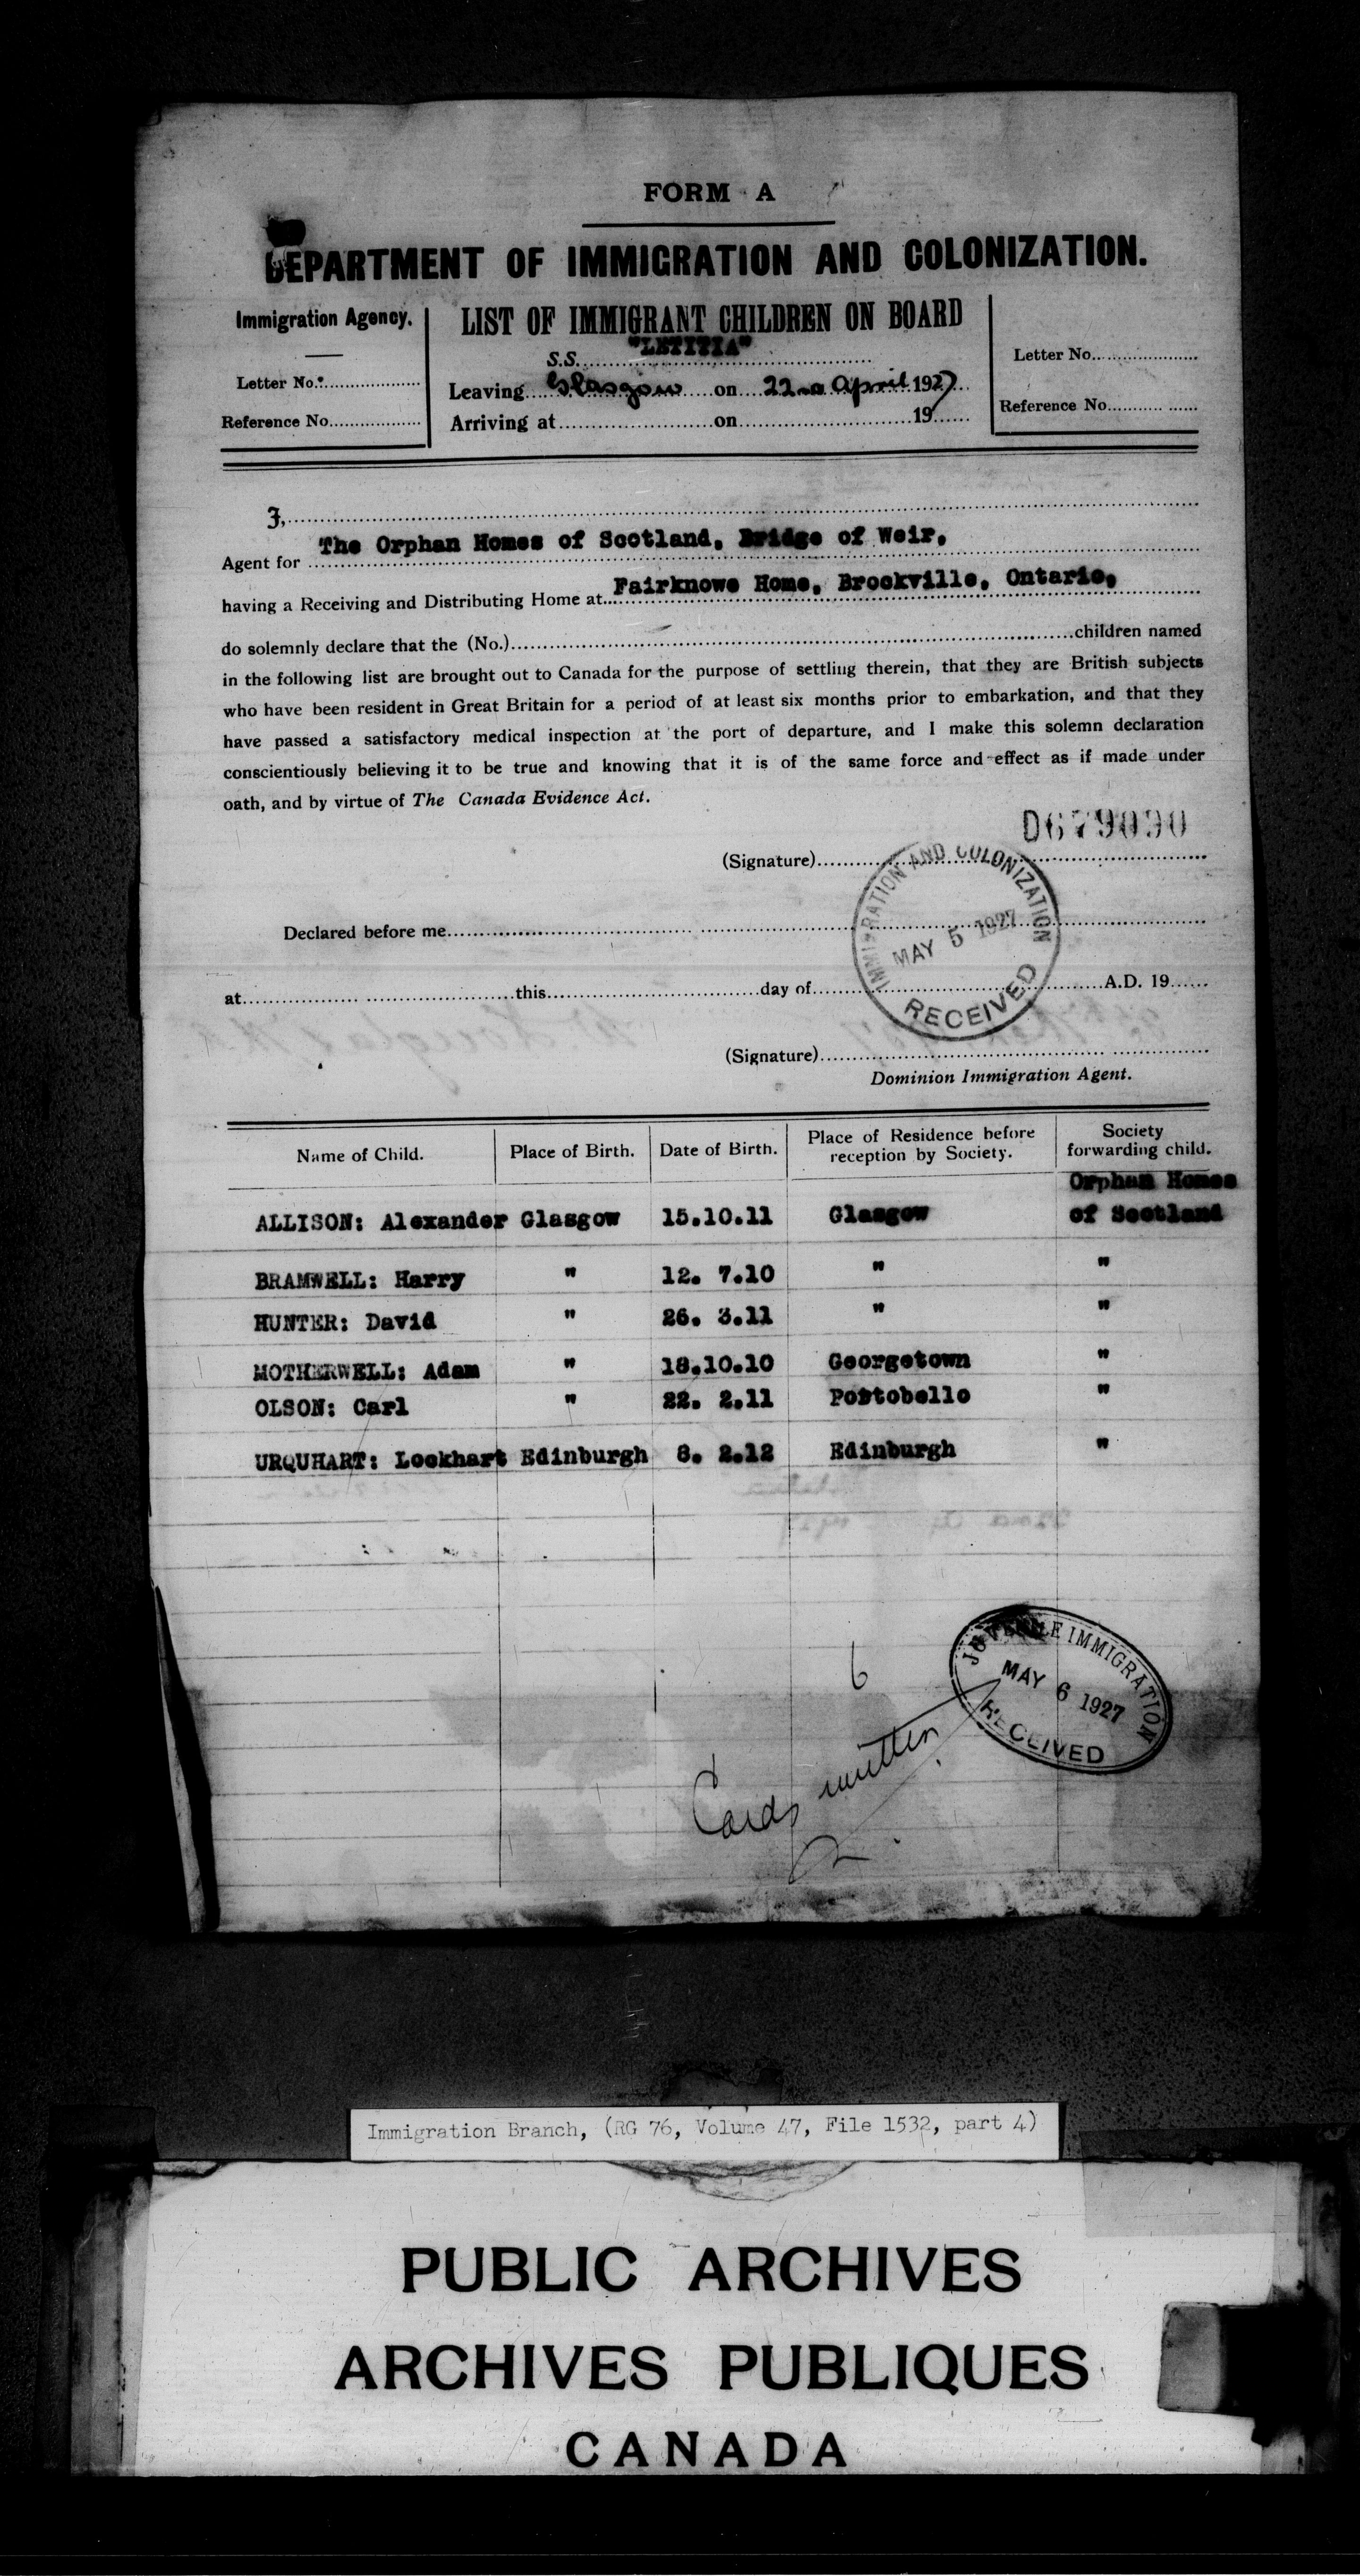 FORM A
DEPARTMENT OF IMMIGRATION AND COLONIZATION.
Immigration Agency.
Letter No.
Reference No.
LIST OF IMMIGRANT CHILDREN ON BOARD
S.S. "LETITIA"
Leaving Glasgow on 22nd April 1927
Arriving at on 19
Letter No.
Reference No.
I,
Agent for The Orphan Homes of Scotland, Bridge of Weir,
having a Receiving and Distributing Home at Fairknowe Home, Brockville, Ontario,
do solemnly declare that the (No.) children named
in the following list are brought out to Canada for the purpose of settling therein, that they are British subjects
who have been resident in Great Britain for a period of at least six months prior to embarkation, and that they
have passed a satisfactory medical inspection at the port of departure, and I make this solemn declaration
conscientiously believing it to be true and knowing that it is of the same force and effect as if made under
oath, and by virtue of The Canada Evidence Act.
D679090
(Signature)
IMMIGRATION AND COLONIZATION
MAY 5 1927
RECEIVED
Declared before me
at this day of A.D. 19
(Signature)
Dominion Immigration Agent.
Name of Child. Place of Birth. Date of Birth. Place of Residence before reception by Society. Society forwarding child.
Orphan Homes
ALLISON: Alexander Glasgow 15.10.11 Glasgow of Scotland
BRAMWELL: Harry " 12. 7.10 " "
HUNTER: David " 26. 3.11 " "
MOTHERWELL: Adam " 18.10.10 Georgetown "
OLSON: Carl " 22. 2.11 Portobello "
URQUHART: Lockhart Edinburgh 8. 2.12 Edinburgh "
6
JUVENILE IMMIGRATION
MAY 6 1927
RECEIVED
Cards written
Immigration Branch, (RG 76, Volume 47, File 1532, part 4)
PUBLIC ARCHIVES
ARCHIVES PUBLIQUES
CANADA